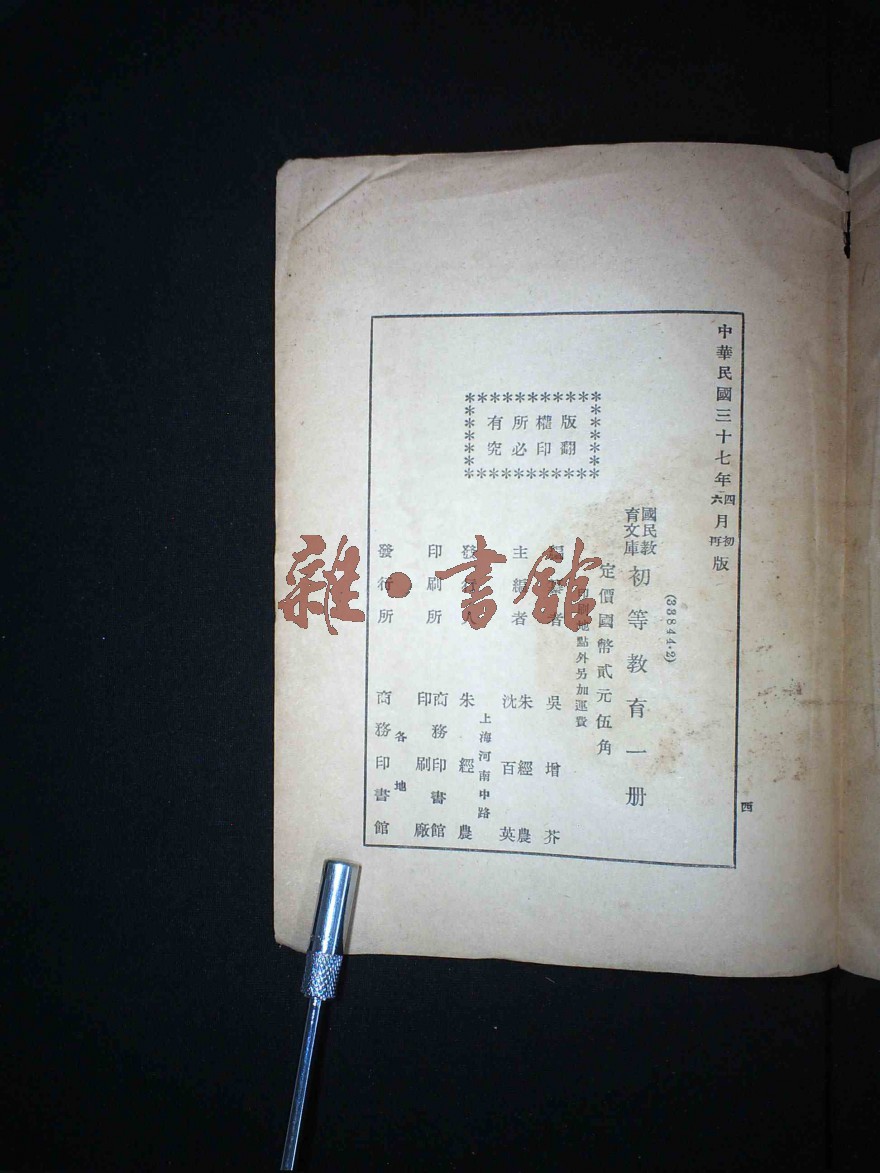 中華民國三十七年四月初版
六月再版
(33844·2)
國民教育文庫 初等教育一册
定價國幣貳元伍角
印刷地點外另加運費
版權所有
翻印必究
編纂者 吳增芥
主編者 朱經農
沈百英
上海河南中路
發行人 朱經農
印刷所 商務印書館
印刷廠
各地
發行所 商務印書館
西
雜·書館